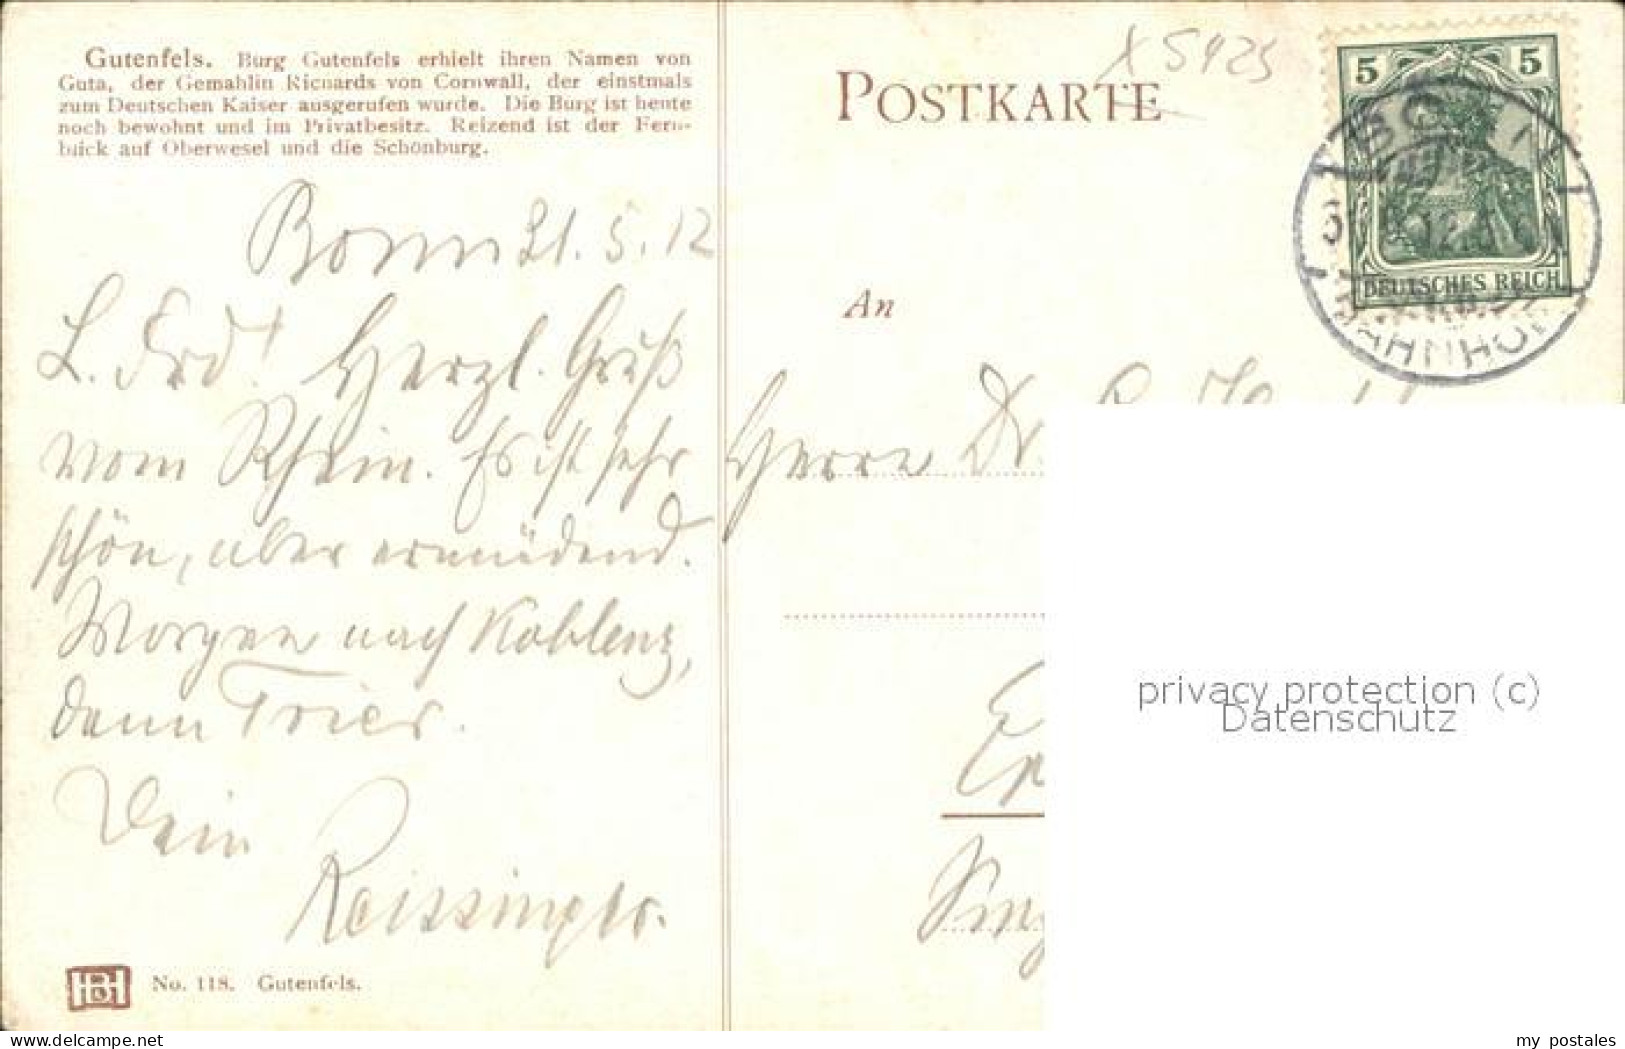 Gutenfels. Burg Gutenfels erhielt ihren Namen von
Guta, der Gemahlin Richards von Cornwall, der einstmals
zum Deutschen Kaiser ausgerufen wurde. Die Burg ist heute
noch bewohnt und im Privatbesitz. Reizend ist der Fern-
blick auf Oberwesel und die Schönburg.
X 5425
POSTKARTE
5 5
DEUTSCHES REICH
BONN
BAHNHOF
Bonn 31. 5. 12
An
L. Frd! Herzl. Gruß
vom Rhein. Es ist sehr
schön, aber ermüdend.
Morgen nach Koblenz,
dann Trier.
Dein
Reissinger.
Herrn Dr.
privacy protection (c)
Datenschutz
HBH No. 118. Gutenfels.
delcampe.net
my_postales